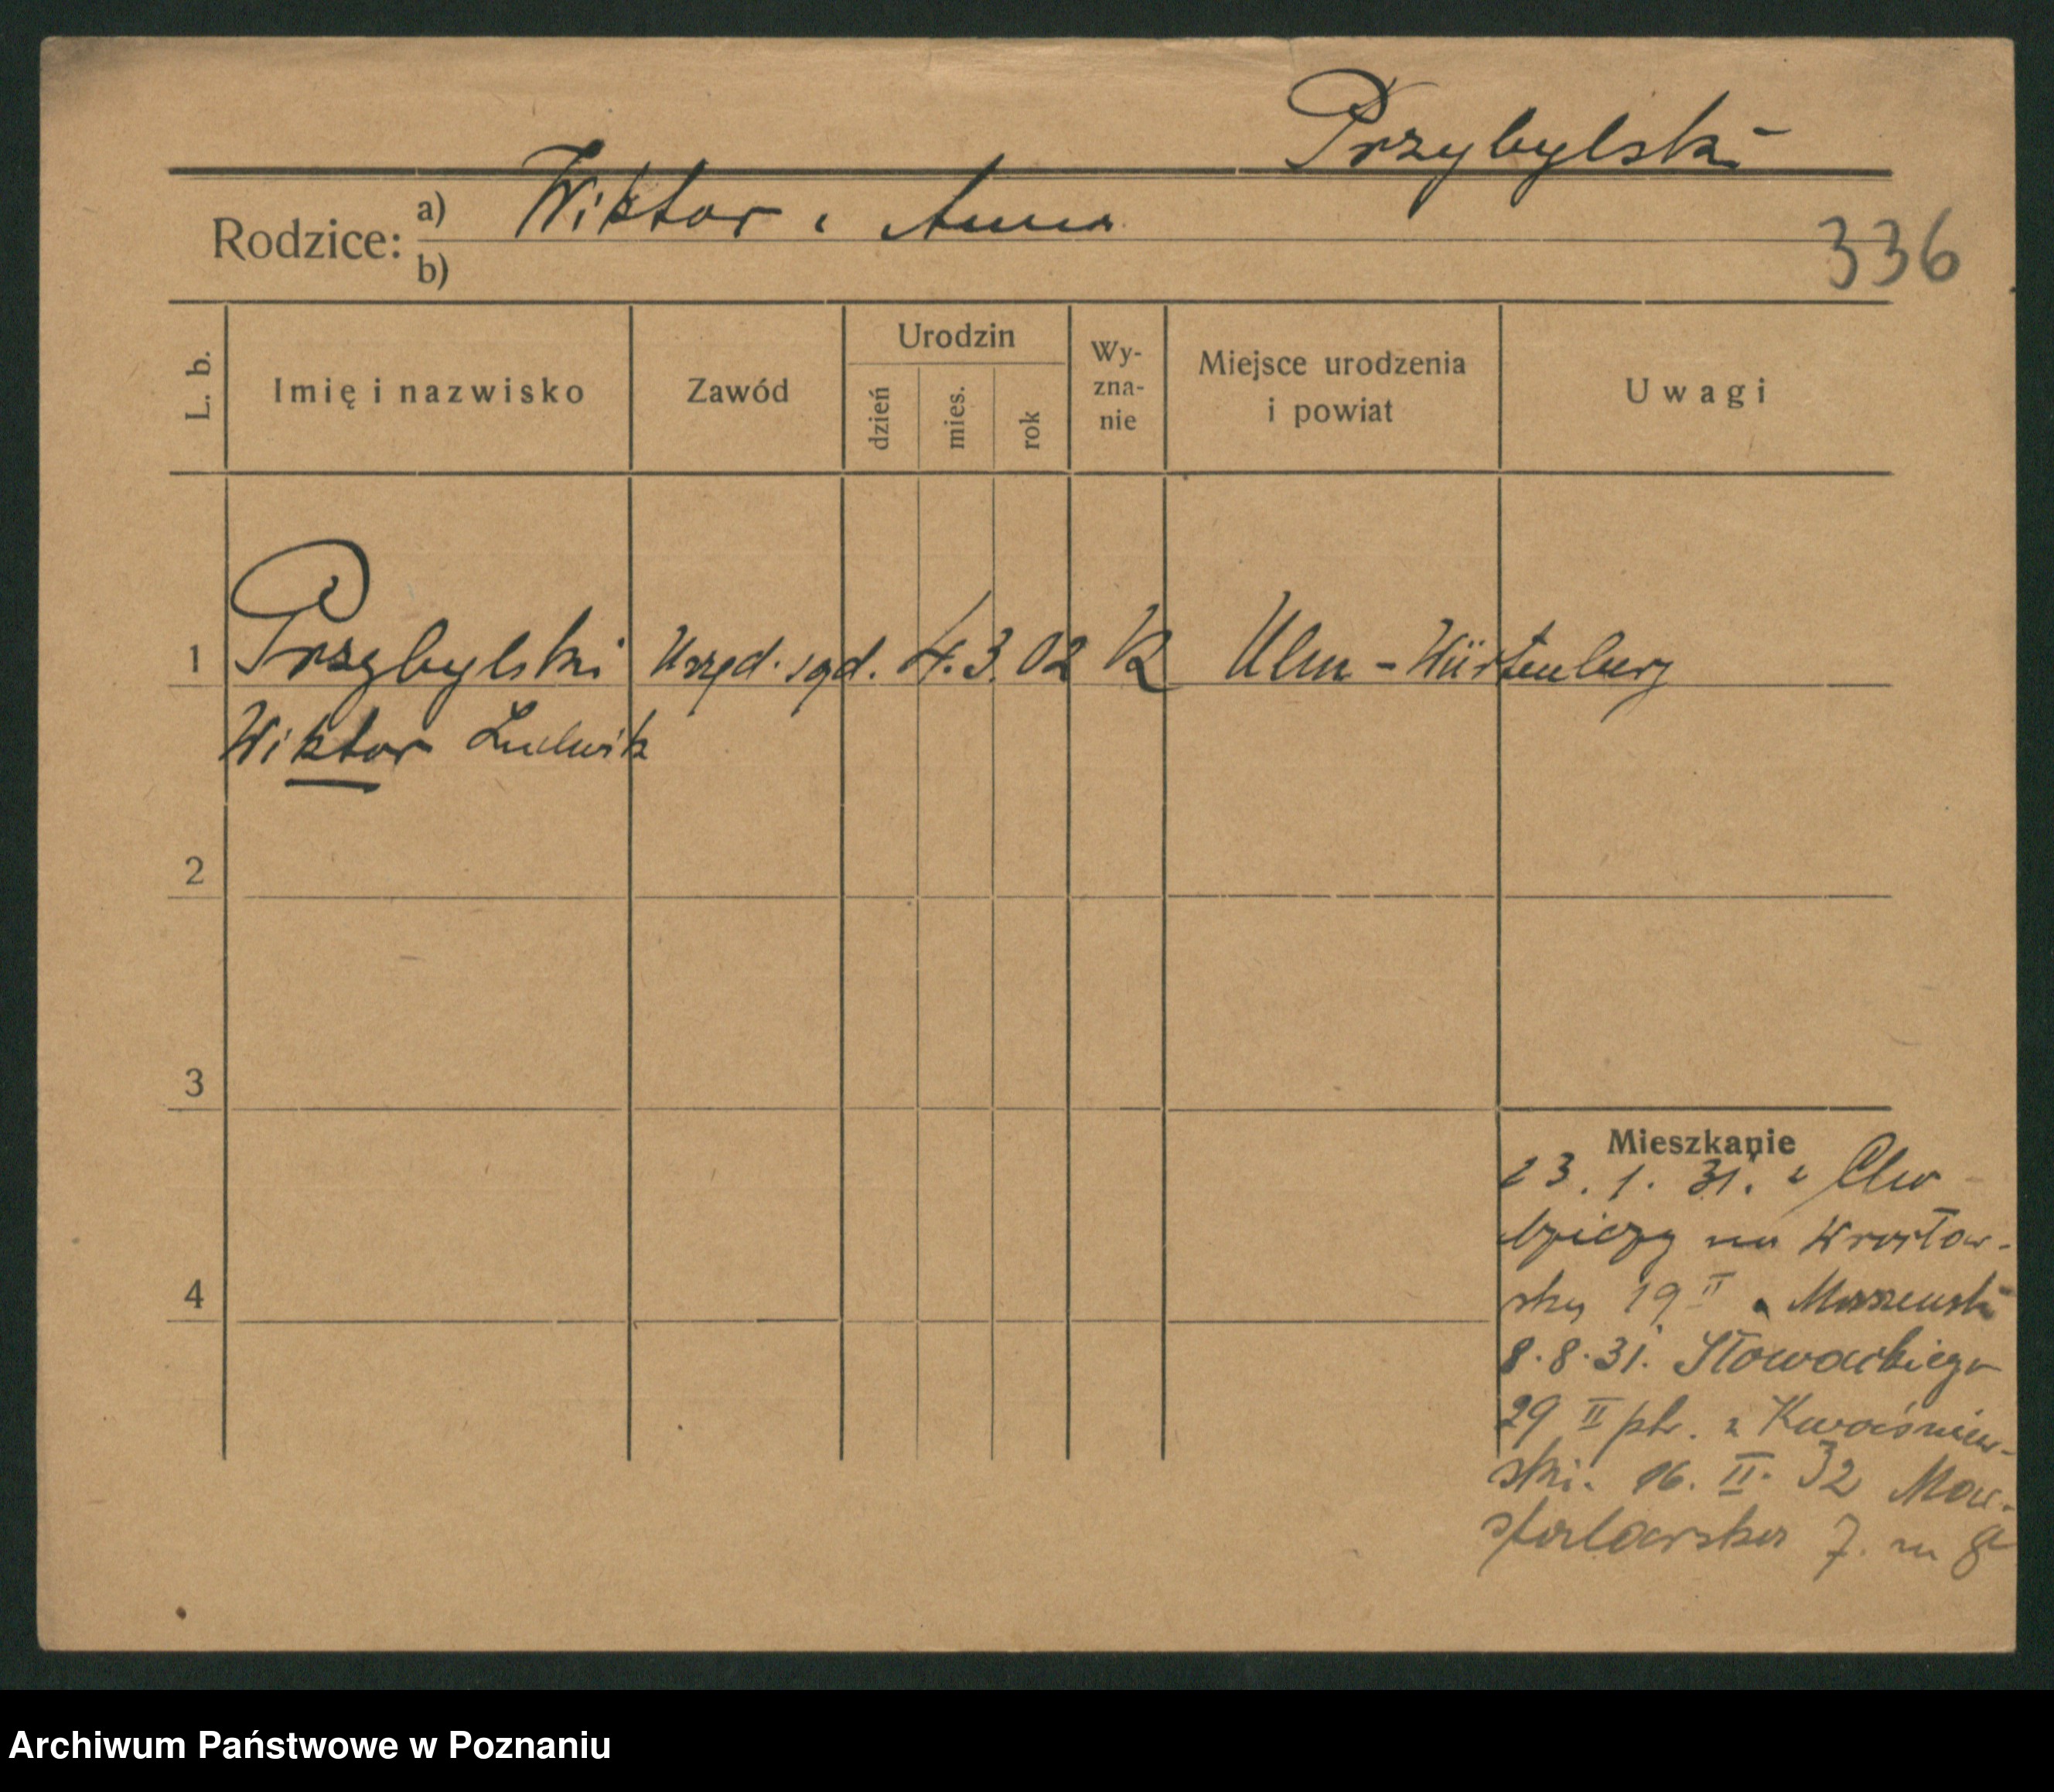 Przybylski
Rodzice: a) Wiktor i Anna
b)
336
L. b.
Imię i nazwisko
Zawód
Urodzin
dzień
mies.
rok
Wy-
zna-
nie
Miejsce urodzenia
i powiat
Uwagi
1 Przybylski Urzęd. sąd. 4. 3. 02 K Ulm - Würtenberg
Wiktor Ludwik
2
3
4
Mieszkanie
23. 1. 31. z
na Wrocław-
ską 19 II u
8. 8. 31. Słowackiego
29 II ptr. u Kwaśniew-
ski. 16. II. 32
7. m 8
Archiwum Państwowe w Poznaniu